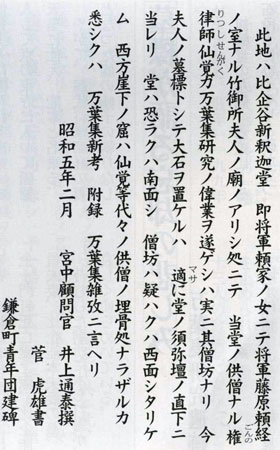 此地ハ比企谷新釈迦堂 即将軍頼家ノ女ニテ将軍藤原頼経
ノ室ナル竹御所夫人ノ廟ノアリシ処ニテ 当堂ノ供僧ナル権
律師仙覚ガ万葉集研究ノ偉業ヲ遂ゲシハ実ニ其僧坊ナリ 今
夫人ノ墓標トシテ大石ヲ置ケルハ 適に堂ノ須弥壇ノ直下ニ
当レリ 堂ハ恐ラクハ南面シ 僧坊ハ疑ハクハ西面シタリケ
ム 西方崖下ノ窟ハ仙覚等代々ノ供僧ノ埋骨処ナラザルカ
悉シクハ 万葉集新考 附録 万葉集雑攷ニ言ヘリ
昭和五年二月 宮中顧問官 井上通泰撰
菅 虎雄書
鎌倉町青年団建碑
ごんの
りつしせんがく
マサ